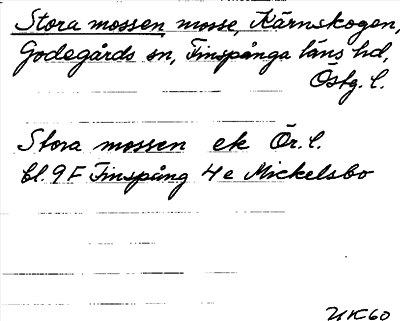 Stora mossen mosse, Kärnskogen,
Godegårds sn, Finspånga läns hd,
Östg. l.
Stora mossen ek Ör. l.
bl. 9F Finspång 4e Mickelsbo
UK60